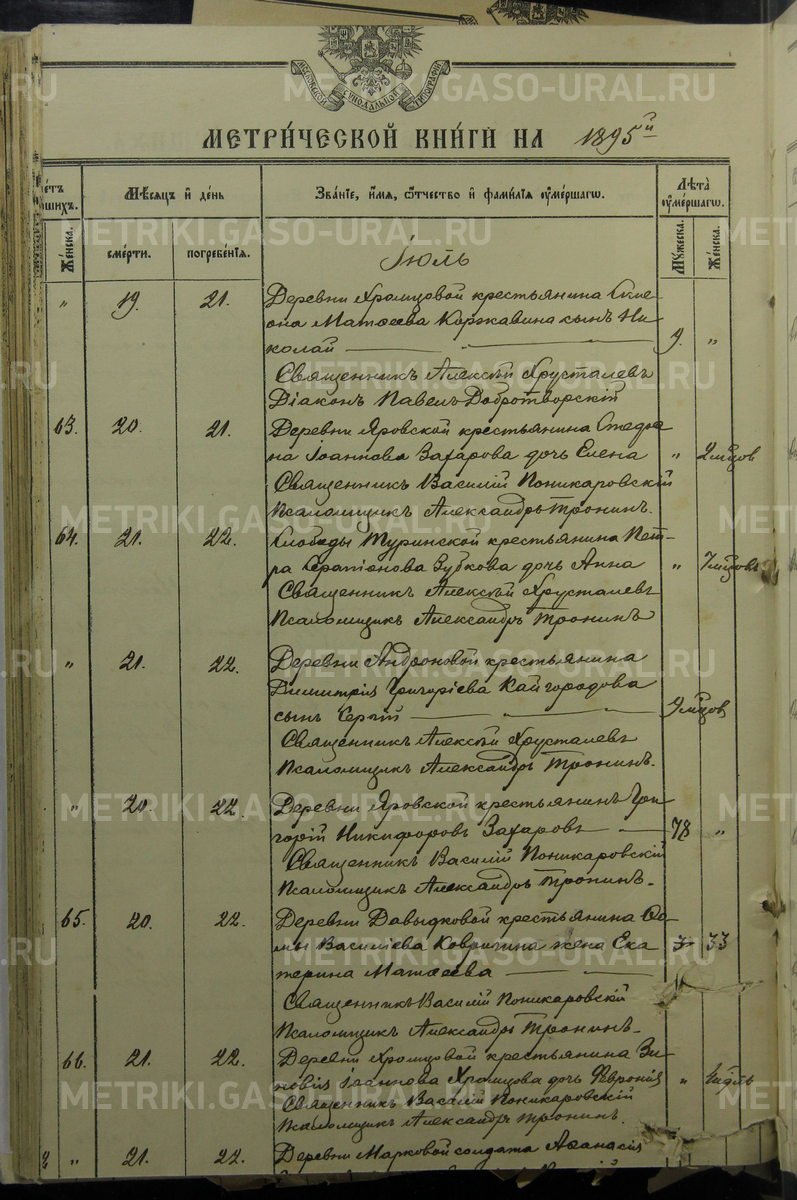 МОСКОВСКОЙ СУНОДАЛЬНОЙ ТИПОГРАФІИ
МЕТРИ́ЧЕСКОЙ КНИ́ГИ НА 1895й
Мѣсяцъ и день
Зва́ніе, и҆́мя, ѻ҆́тчество и҆ фами́лія ᲂу҆ме́ршагѡ.
Лѣта̀ ᲂу҆ме́ршагѡ.
Же́нска.
сме́рти.
погребе́нія.
Мꙋ́жеска.
Же́нска.
Іюль
" 19. 21. Деревни Хромцовой крестьянина Симе-
она Матѳеева Коржавина сынъ Ни-
колай — " — 9. "
Священникъ Алексѣй Хрусталевъ
Діаконъ Павелъ Добротворскій
63. 20. 21. Деревни Яровской крестьянина Стефа-
на Іоаннова Захарова дочь Елена " 2 мѣсцов
Священникъ Василій Поникаровскій
Псаломщикъ Александръ Тронинъ.
64. 21. 22. Слободы Туринской крестьянина Пет-
ра Серапіонова Зубкова дочь Анна " 7 мѣсцовъ
Священникъ Алексѣй Хрусталевъ
Псаломщикъ Александръ Тронинъ
" 21. 22. Деревни Андроновой крестьянина
Димитрія Григоріева Кайгородова
сынъ Сергій — " — 9 мѣсцов
Священникъ Алексѣй Хрусталевъ
Псаломщикъ Александръ Тронинъ.
" 20. 22. Деревни Яровской крестьянинъ Гри-
горій Никифоровъ Захаровъ — 78 "
Священникъ Василій Поникаровскій
Псаломщикъ Александръ Тронинъ.
65. 20. 22. Деревни Давыдковой крестьянина Ѳо-
мы Василіева Ковригина жена Ека-
терина Матѳеева — 33
Священникъ Василій Поникаровскій
Псаломщикъ Александръ Тронинъ.
66. 21. 22. Деревни Хромцовой крестьянина Зи-
новія Іоаннова Хромцова дочь Ѳевронія "
Священникъ Василій Поникаровскій
Псаломщикъ Александръ Тронинъ.
" 21. 22. Деревни Марковой солдата Аѳанасія
METRIKI.GASO-URAL.RU